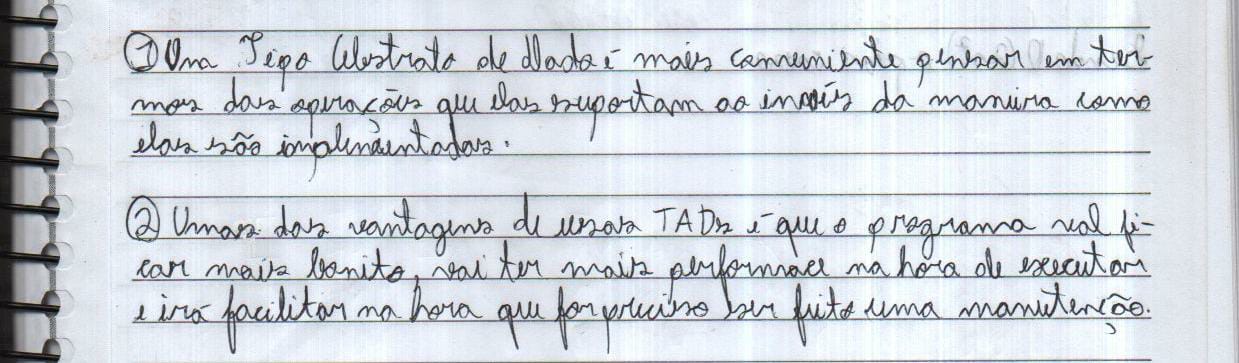 ① Um Tipo Abstrato de Dado é mais conveniente pensar em ter-
mos das operações que elas suportam ao invés da maneira como
elas são implementadas.
② Umas das vantagens de usar TADs é que o programa vai fi-
car mais bonito, vai ter mais performace na hora de executar
e irá facilitar na hora que for preciso ser feito uma manutenção.